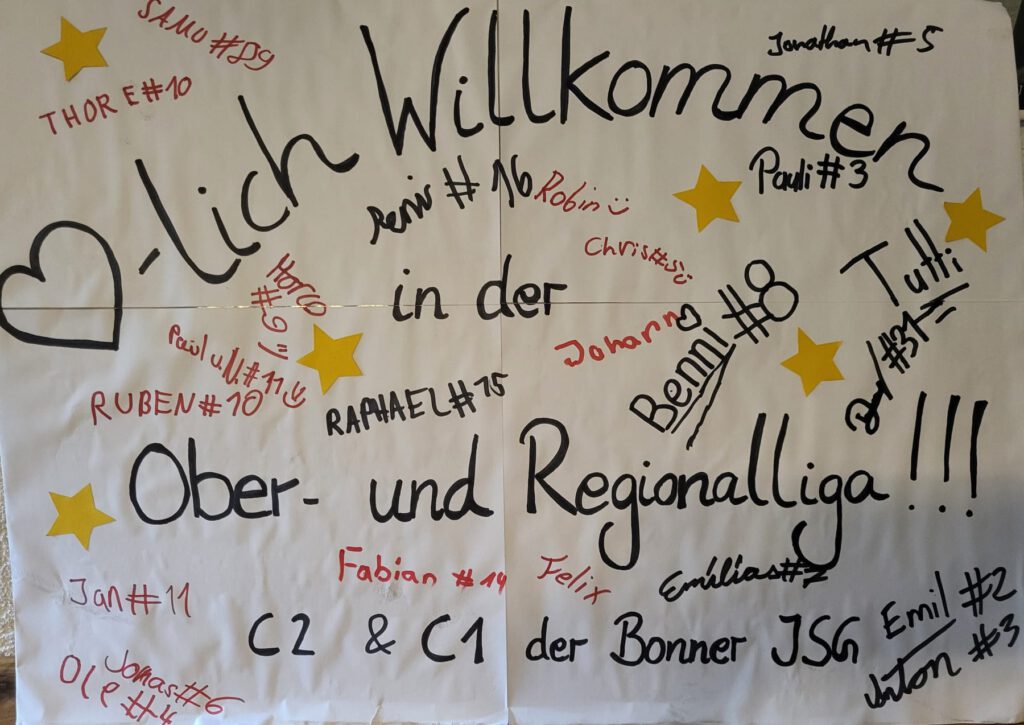 SAMU #99
Jonathan #5
THORE #10
♡-lich Willkommen
Pauli #3
#16
Robin
Chris #5
Tutti
in der
#9
Johann
Benni #8
#31
Paul #11
RUBEN #10
RAPHAEL #15
Ober- und Regionalliga!!!
Fabian #14
Felix
Emilias #2
Jan #11
Emil #2
C2 & C1 der Bonner JSG
Anton #3
Jonas #6
Ole #4